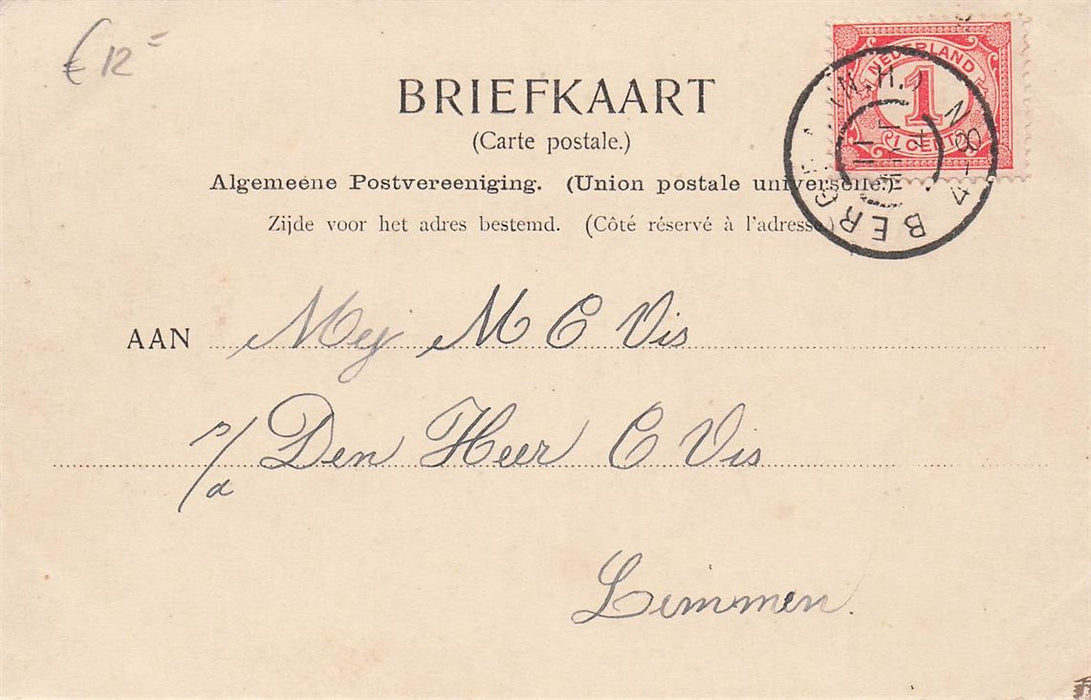 € 12-
NEDERLAND
1
1 CENT
BERGEN (N.H.)
BRIEFKAART
(Carte postale.)
Algemeene Postvereeniging. (Union postale universelle.)
Zijde voor het adres bestemd. (Côté réservé à l'adresse.)
AAN Mej M C Vis
p/a Den Heer C Vis
Limmen.